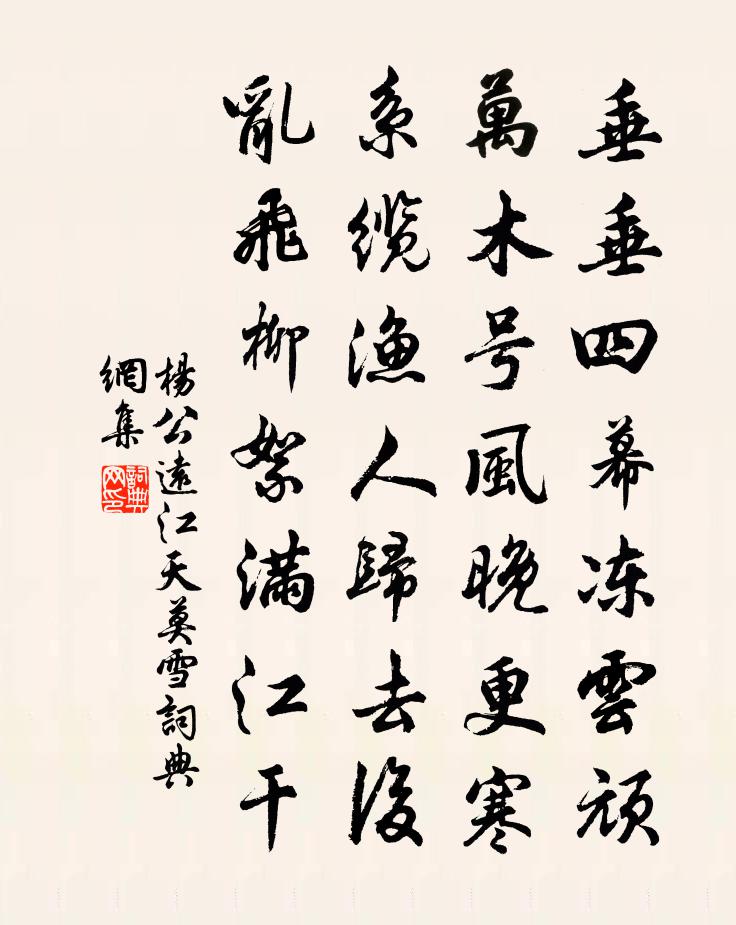 垂垂四幕冻雲頑
萬木号風晚更寒
系缆漁人歸去後
亂飛柳絮滿江干
楊公遠江天莫雪詞典
網集
詞典
网印